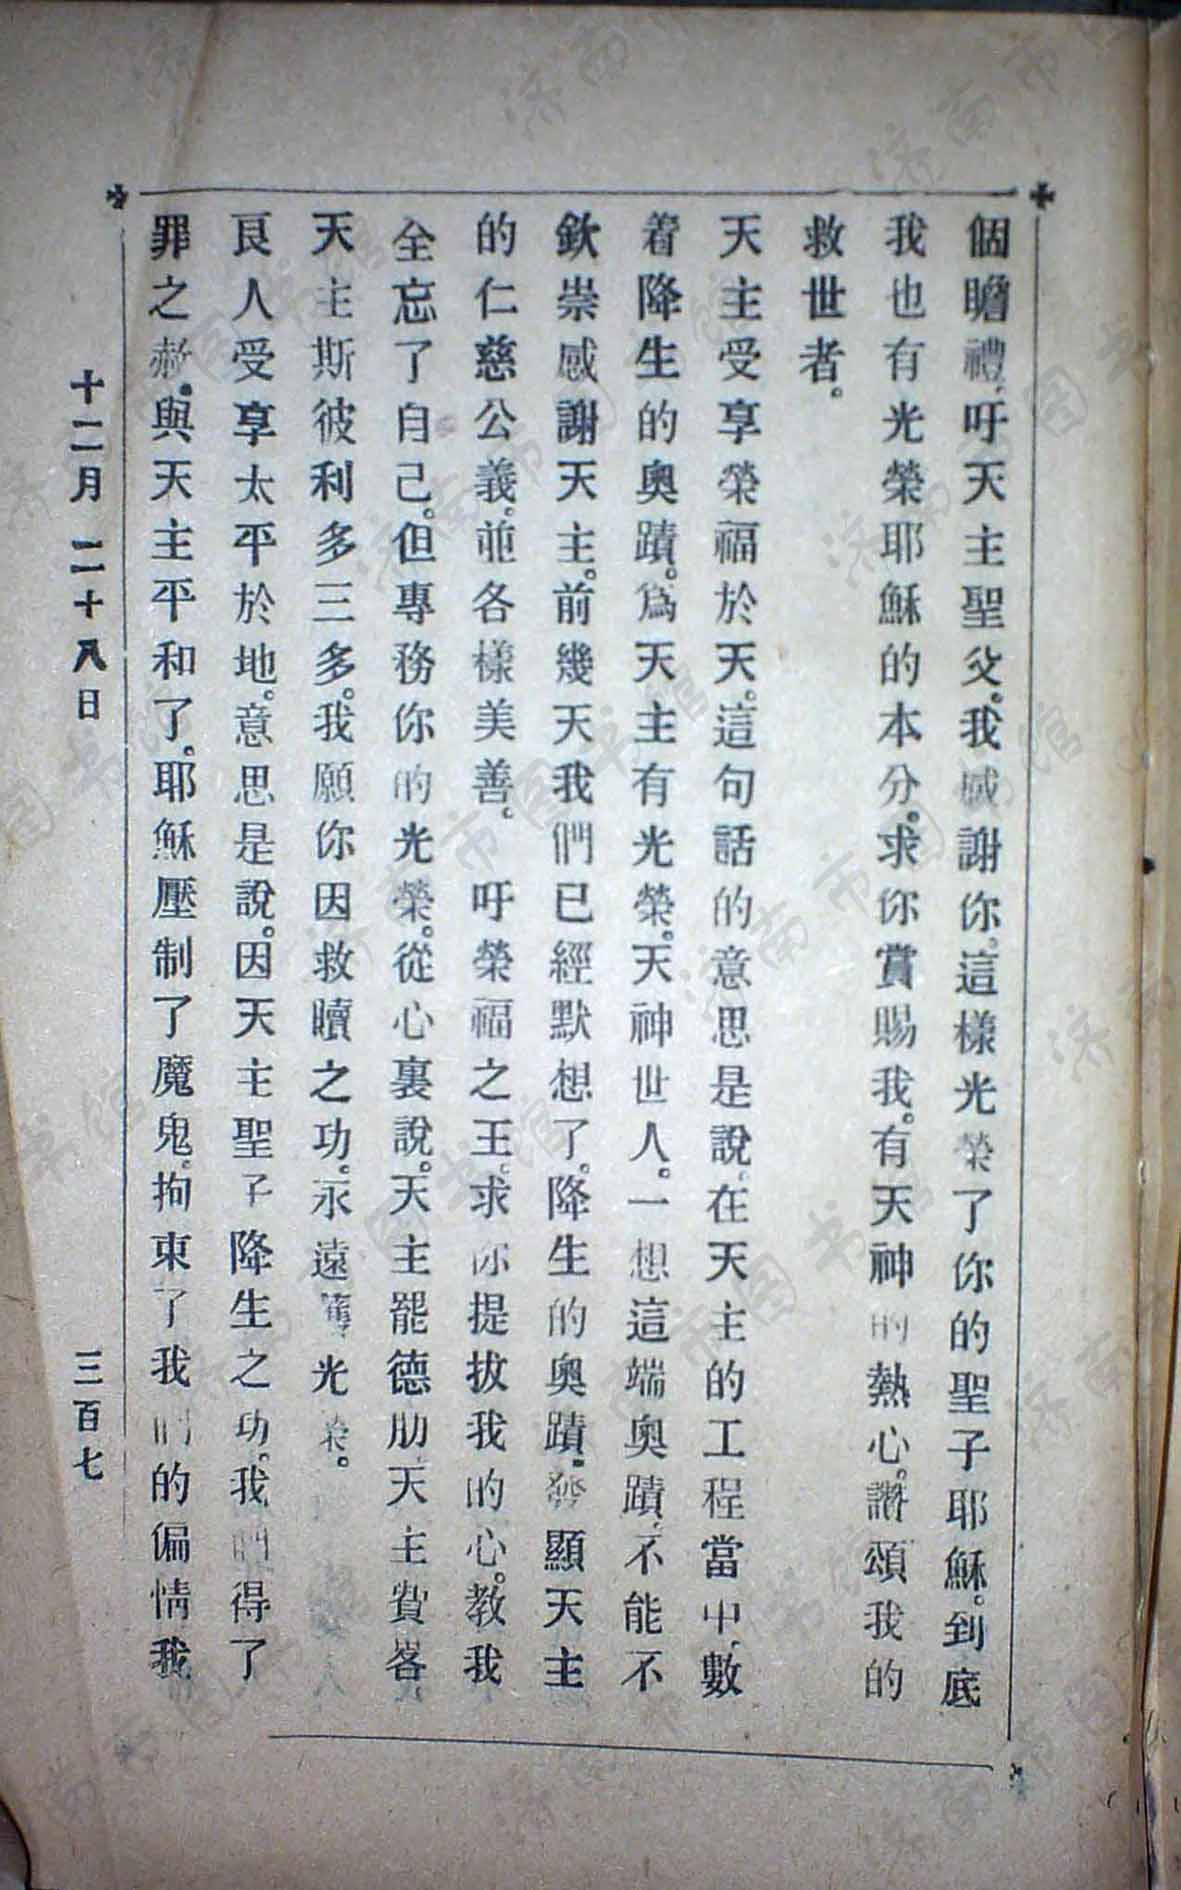 個瞻禮、吁天主聖父。我感謝你。這樣光榮了你的聖子耶穌。到底
我也有光榮耶穌的本分。求你賞賜我。有天神的熱心。讚頌我的
救世者。
天主受享榮福於天。這句話的意思是說、在天主的工程當中、數
着降生的奧蹟。爲天主有光榮。天神世人。一想這端奧蹟、不能不
欽崇感謝天主。前幾天我們已經默想了。降生的奧蹟。發顯天主
的仁慈公義。並各樣美善。吁榮福之王、求你提拔我的心。教我
全忘了自己。但專務你的光榮。從心裏說。天主罷德肋、天主費畧
天主斯彼利多三多。我願你因救贖之功。永遠獲光榮。
良人受享太平於地。意思是說。因天主聖子降生之功。我們得了
罪之赦。與天主平和了。耶穌壓制了魔鬼。拘束了我們的偏情我
十二月二十八日
三百七
济南市图书馆